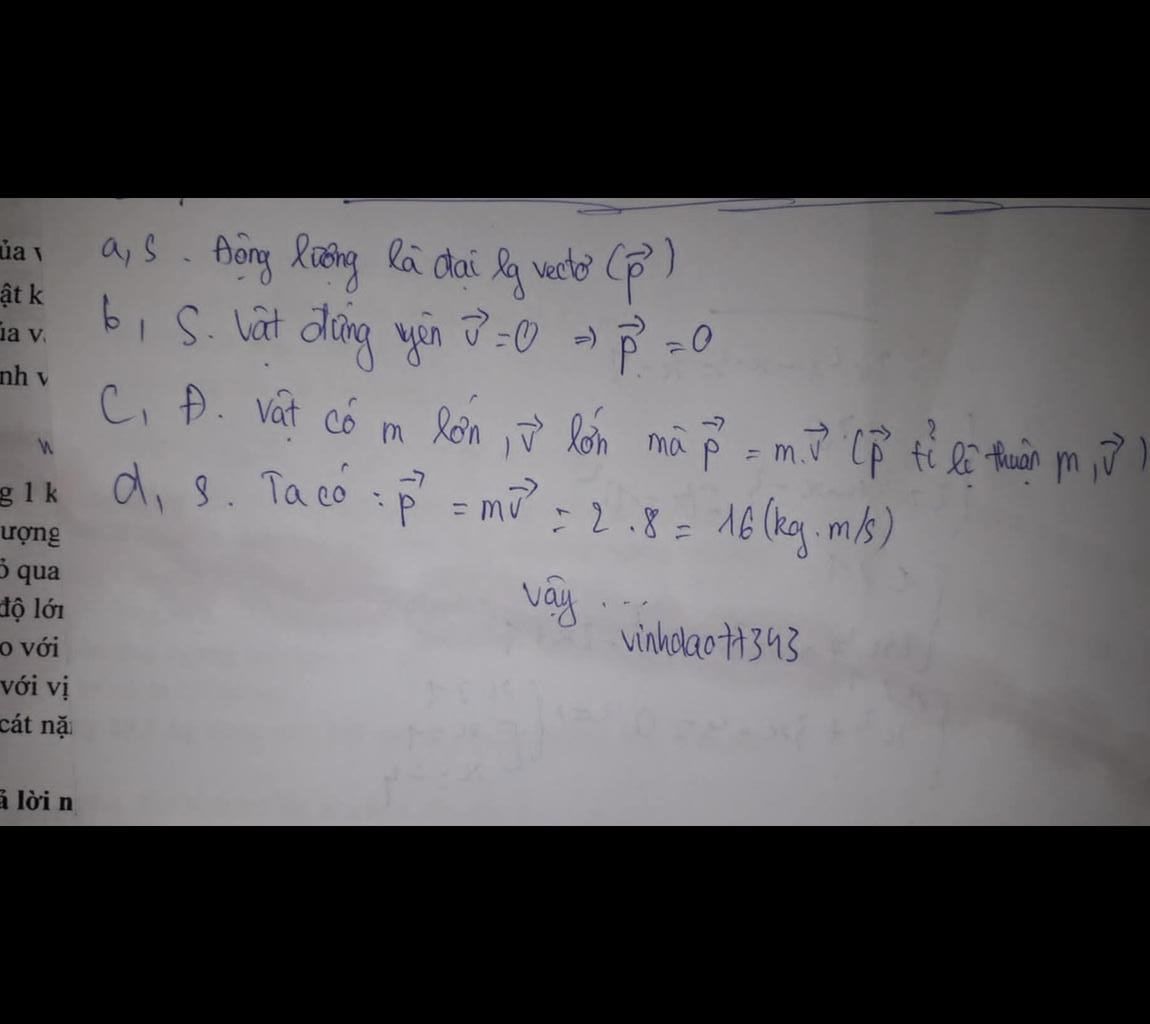 ủa v
ật k
ủa v
nh v
g 1 k
ượng
ỏ qua
độ lớn
o với
với vị
cát nặ
ả lời n
a, S. Động lượng là đại lg vectơ (p⃗)
b, S. Vật đứng yên v⃗ = 0 ⇒ p⃗ = 0
C, Đ. Vật có m lớn, v⃗ lớn mà p⃗ = m.v⃗ (p⃗ tỉ lệ thuận m, v⃗)
d, S. Ta có: p⃗ = mv⃗ = 2.8 = 16 (kg.m/s)
Vậy ...